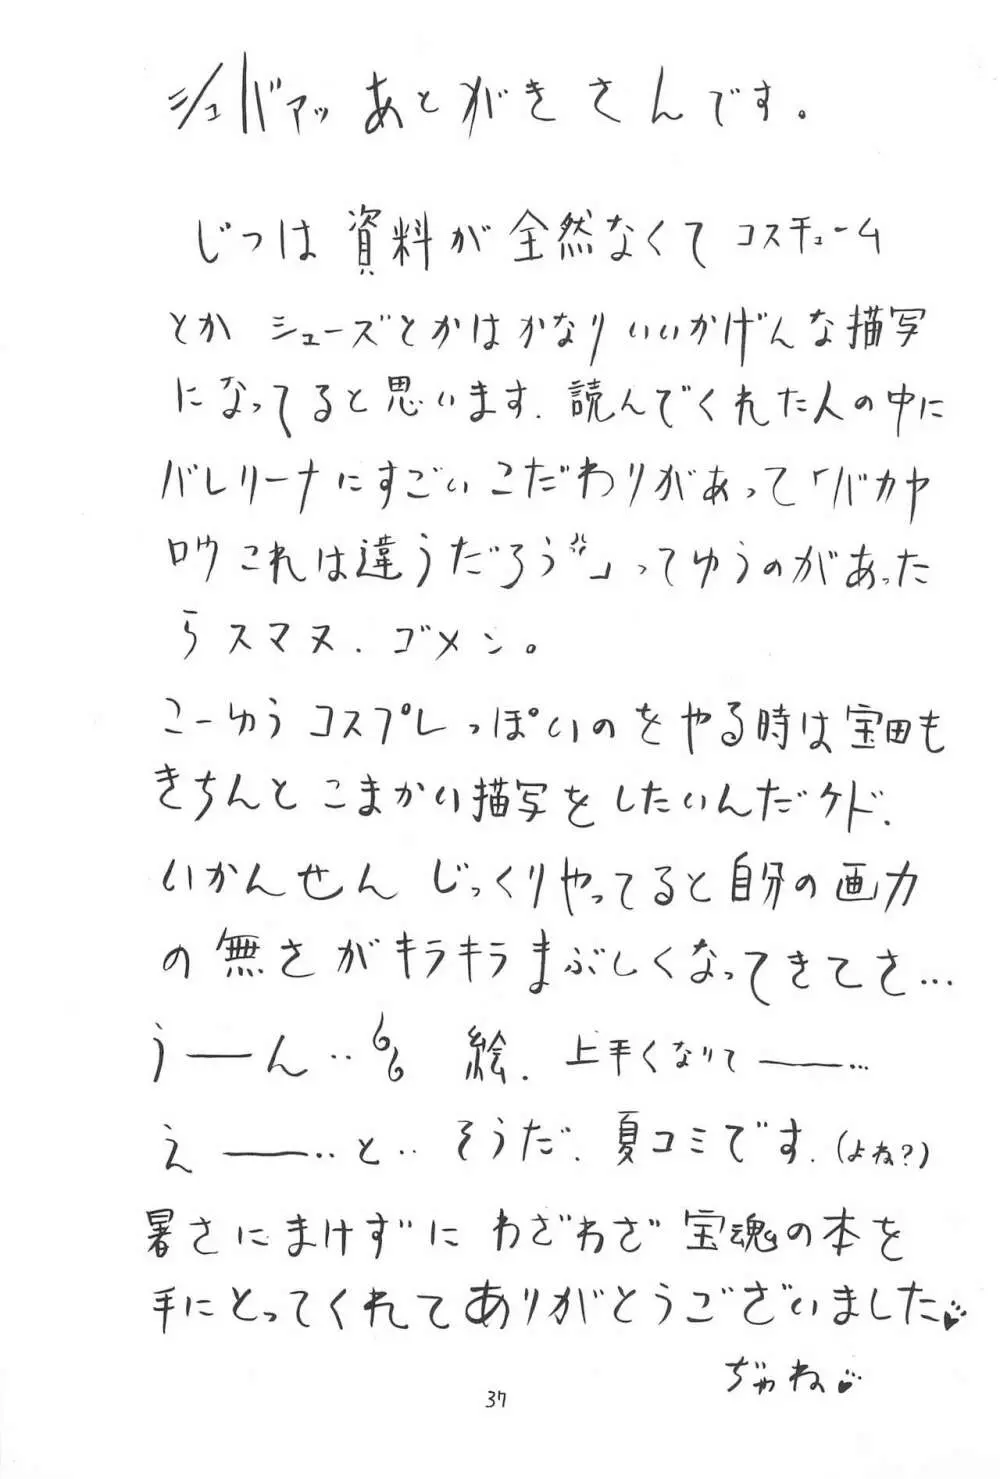 シュバァッ あとがきさんです。
じつは 資料が 全然なくて コスチューム
とか シューズとかは かなり いいかげんな描写
になってると思います. 読んでくれた人の中に
バレリーナにすごい こだわりがあって「バカヤ
ロウ これは違うだろう」ってゆうのがあった
らスマヌ. ゴメン。
こーゆう コスプレっぽいのを やる時は 宝田も
きちんと こまかい描写を したいんだケド.
いかんせん じっくりやってると 自分の画力
の無さが キラキラ まぶしくなってきてさ…
うーん‥ 絵. 上手くなりてー…
えー‥と‥ そうだ. 夏コミです. (よね?)
暑さにまけずに わざわざ 宝魂の本を
手にとってくれて ありがとうございました
ぢゃね
37